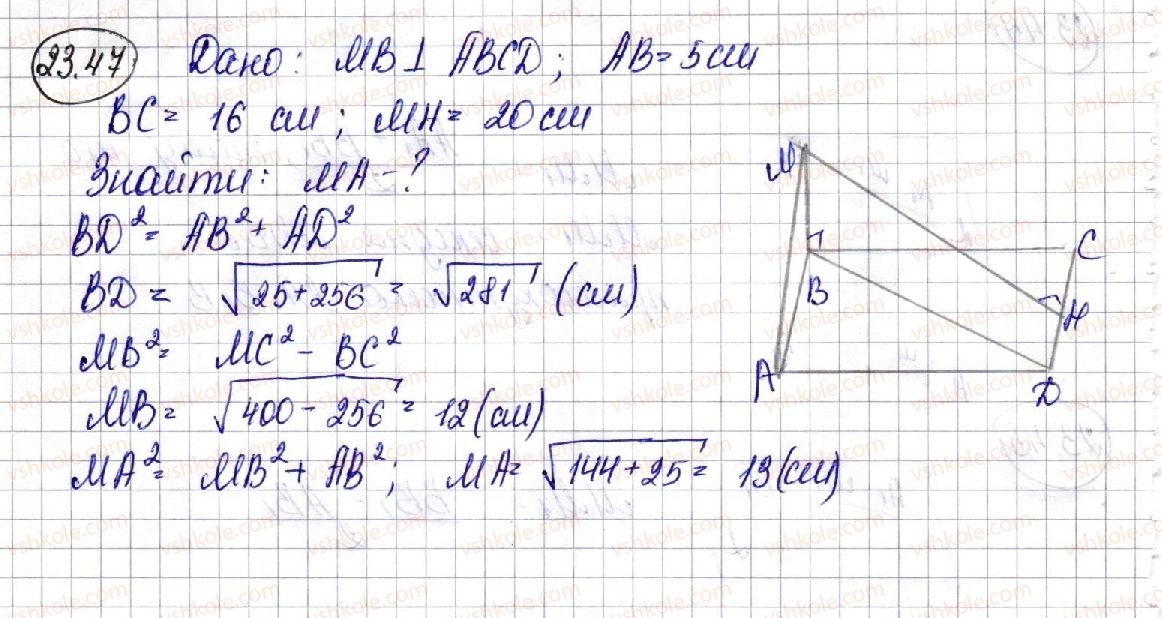 23.47 Дано: MB ⊥ ABCD; AB = 5 см
BC = 16 см; MH = 20 см
Знайти: MA - ?
BD² = AB² + AD²
BD = √25+256 = √281 (см)
MB² = MC² - BC²
MB = √400-256 = 12 (см)
MA² = MB² + AB²; MA = √144+25 = 13 (см)
M
C
B
H
A
D